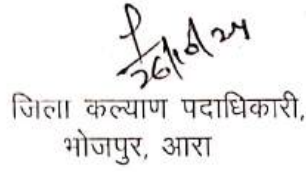 26/10/24
जिला कल्याण पदाधिकारी,
भोजपुर, आरा